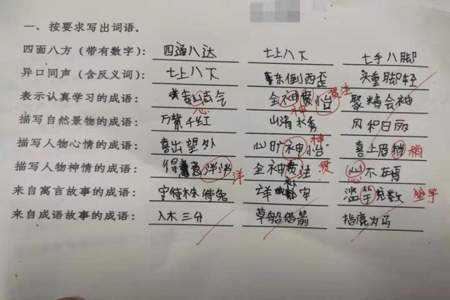 一、按要求写出词语。
四面八方（带有数字）： 四通八达 七上八下 七手八脚
异口同声（含反义词）： 七上八下 东倒西歪 头重脚轻
表示认真学习的成语： 全神贯 注 聚精会神
描写自然景物的成语： 万紫千红 山清水秀 风和日丽
描写人物心情的成语： 喜出望外 心旷神怡 喜上眉梢 梢
描写人物神情的成语： 得 洋洋 洋 全神贯注 贯 心不在焉
来自寓言故事的成语： 守株待兔 滥竽充数 竽
来自成语故事的成语： 入木三分 草船借箭 指鹿为马